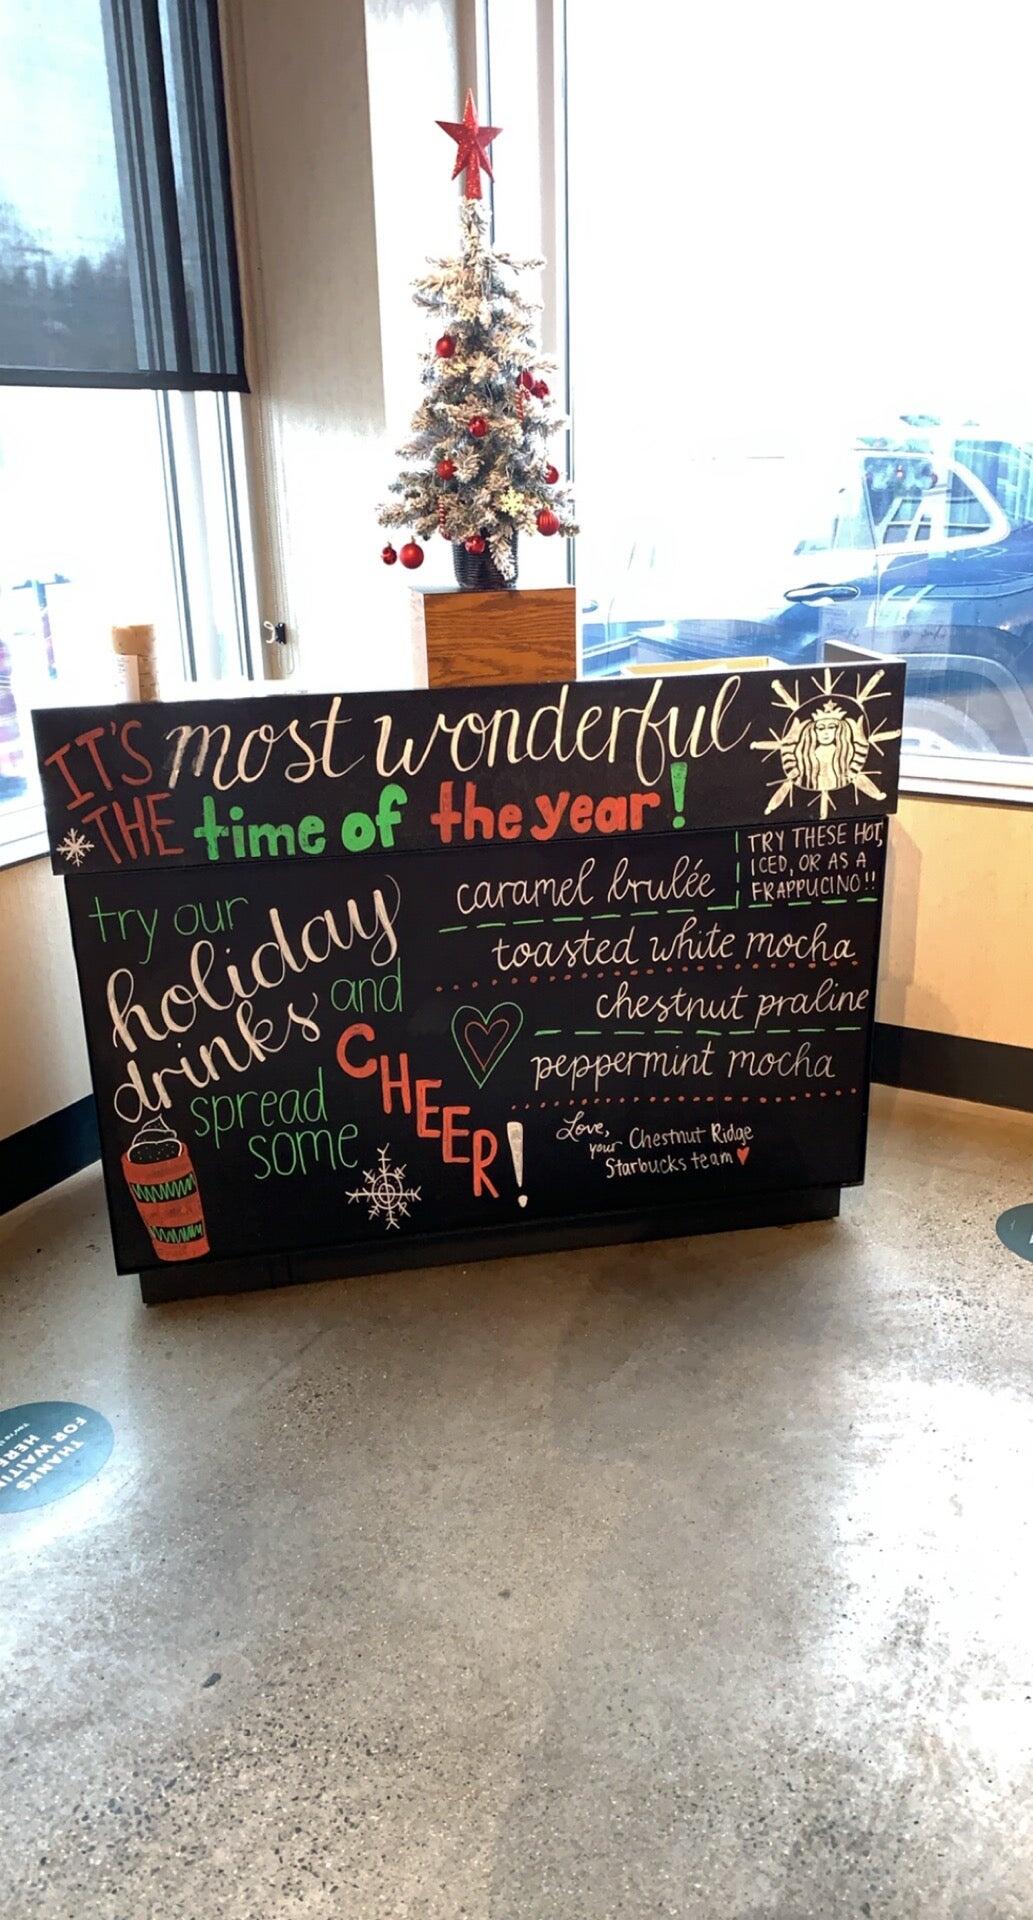 IT'S most wonderful
THE time of the year!
try our
holiday
drinks and
spread
some
CHEER!
caramel brulée
TRY THESE HOT,
ICED, OR AS A
FRAPPUCINO!!
toasted white mocha
chestnut praline
peppermint mocha
Love,
your Chestnut Ridge
Starbucks team
THANKS
FOR WAITIN
HERE